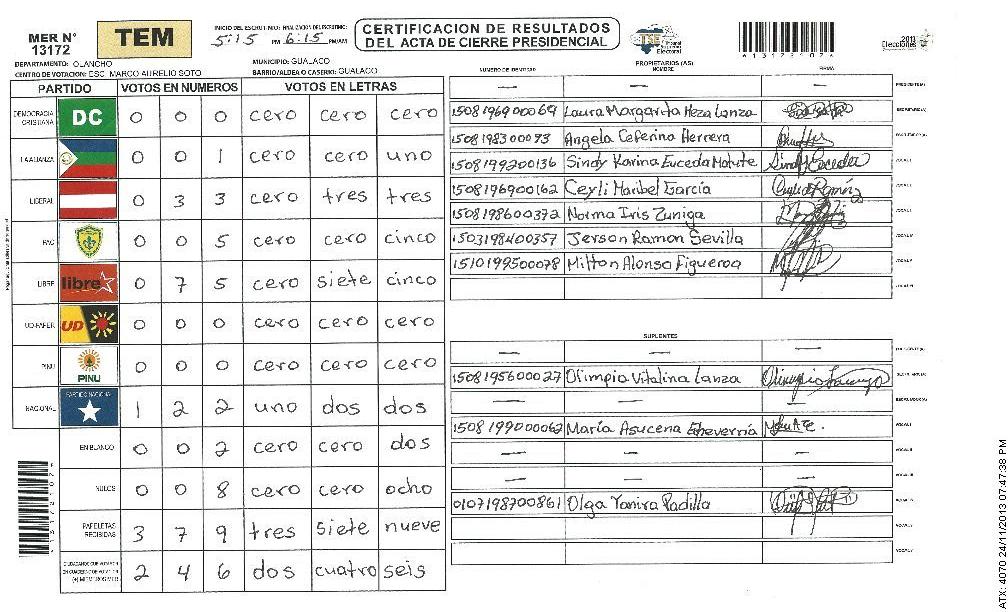 MER N° 13172
TEM
INICIO DEL ESCRUTINIO: 5:15 PM
6:15 PM/AM
CERTIFICACION DE RESULTADOS
DEL ACTA DE CIERRE PRESIDENCIAL
TSE
Tribunal Supremo Electoral
2013
Elecciones
DEPARTAMENTO: OLANCHO
MUNICIPIO: GUALACO
CENTRO DE VOTACION: ESC. MARCO AURELIO SOTO
BARRIO/ALDEA O CASERIO: GUALACO
PARTIDO VOTOS EN NUMEROS VOTOS EN LETRAS
DEMOCRACIA CRISTIANA DC 0 0 0 cero cero cero
LA ALIANZA 0 0 1 cero cero uno
LIBERAL 0 3 3 cero tres tres
PAC 0 0 5 cero cero cinco
LIBRE libre 0 7 5 cero siete cinco
UD-FAPER UD 0 0 0 cero cero cero
PINU PINU 0 0 0 cero cero cero
NACIONAL PARTIDO NACIONAL 1 2 2 uno dos dos
EN BLANCO 0 0 2 cero cero dos
NULOS 0 0 8 cero cero ocho
PAPELETAS RECIBIDAS 3 7 9 tres siete nueve
2 4 6 dos cuatro seis
NUMERO DE IDENTIDAD PROPIETARIOS (AS) NOMBRE FIRMA
— — — PRESIDENTE(A)
1508196900069 Laura Margarita Meza Lanza SECRETARIO(A)
1508198300093 Angela Ceferina Herrera ESCRUTADOR(A)
1508199200136 Sindy Karina Euceda Matute VOCAL I
1508196900162 Ceyli Maribel García
1508198600372 Norma Iris Zuniga
1503198400357 Jerson Ramon Sevilla
1510199500078 Milton Alonso Figueroa
SUPLENTES
— — —
1508195600027 Olimpia Vitalina Lanza SECRETARIO(A)
— — ESCRUTADOR(A)
1508199000062 María Asucena Echeverría
— — —
— — —
0107198700861 Olga Yamira Padilla
ATX: 4070 24/11/2013 07:47:38 PM